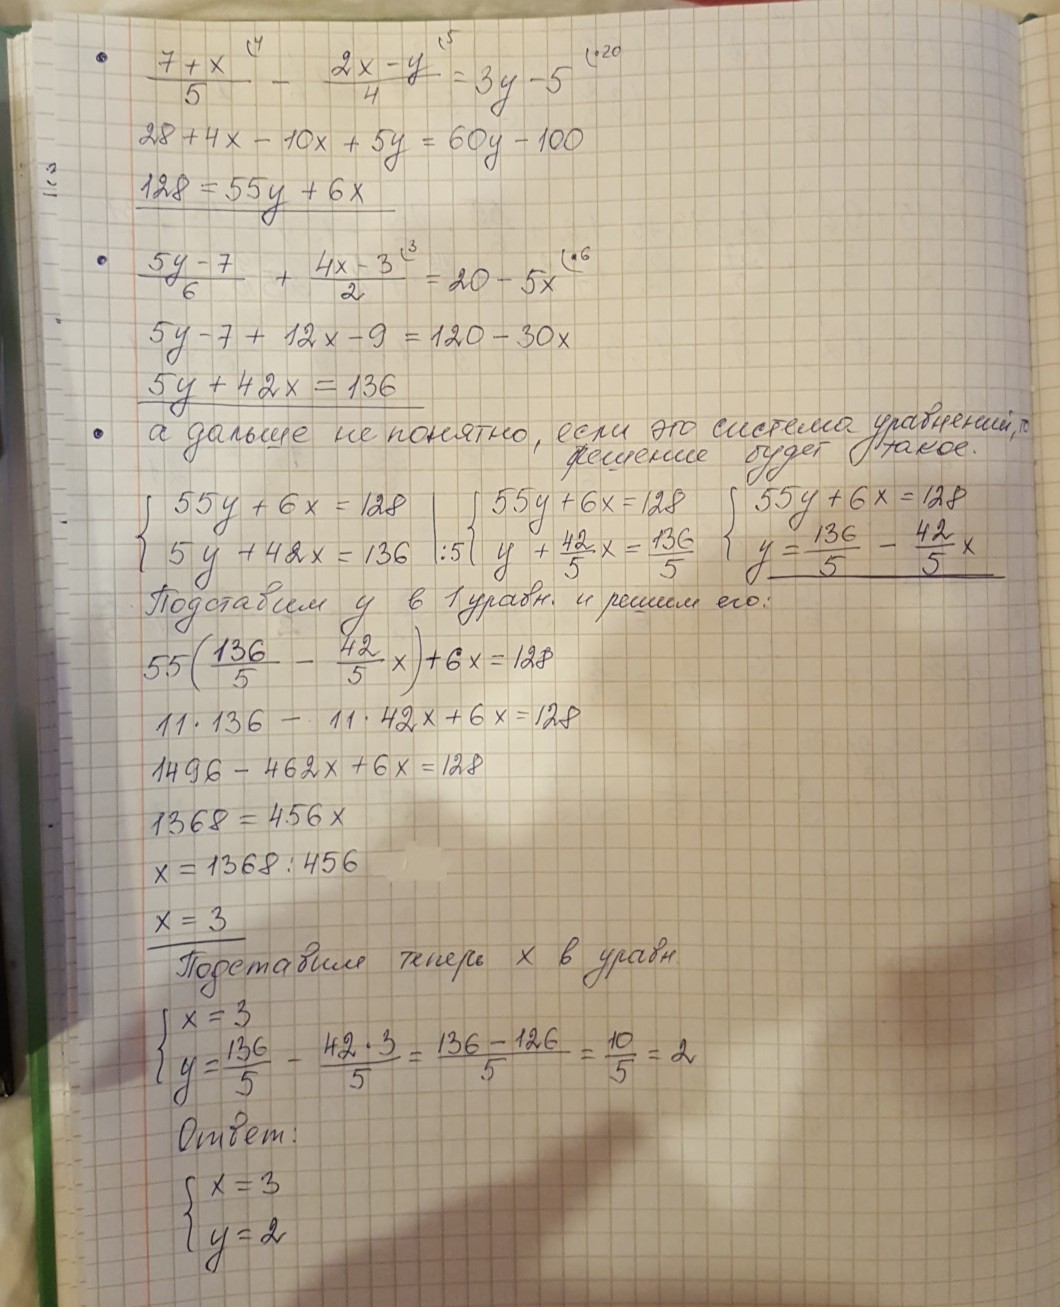 • (7+x)/5 (4 − (2x−y)/4 (5 = 3y−5 (·20
28+4x−10x+5y=60y−100
128=55y+6x
• (5y−7)/6 + (4x−3)/2 (3 = 20−5x (·6
5y−7+12x−9=120−30x
5y+42x=136
• а дальше не понятно, если это система уравнений, то
решение будет такое.
{ 55y+6x=128 | { 55y+6x=128 { 55y+6x=128
{ 5y+42x=136 |:5 { y+42/5x=136/5 { y=136/5−42/5x
Подставим y в 1 уравн. и решим его:
55(136/5 − 42/5x)+6x=128
11·136 − 11·42x+6x=128
1496−462x+6x=128
1368=456x
x=1368:456
x=3
Подставим теперь x в уравн
{ x=3
{ y=136/5 − 42·3/5 = (136−126)/5 = 10/5 = 2
Ответ:
{ x=3
{ y=2